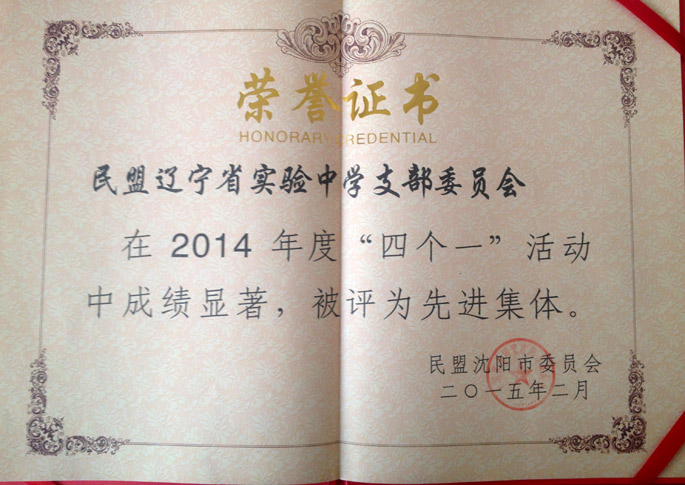 荣誉证书
HONORARY CREDENTIAL
民盟辽宁省实验中学支部委员会
在 2014 年度“四个一”活动
中成绩显著，被评为先进集体。
民盟沈阳市委员会
二〇一五年二月